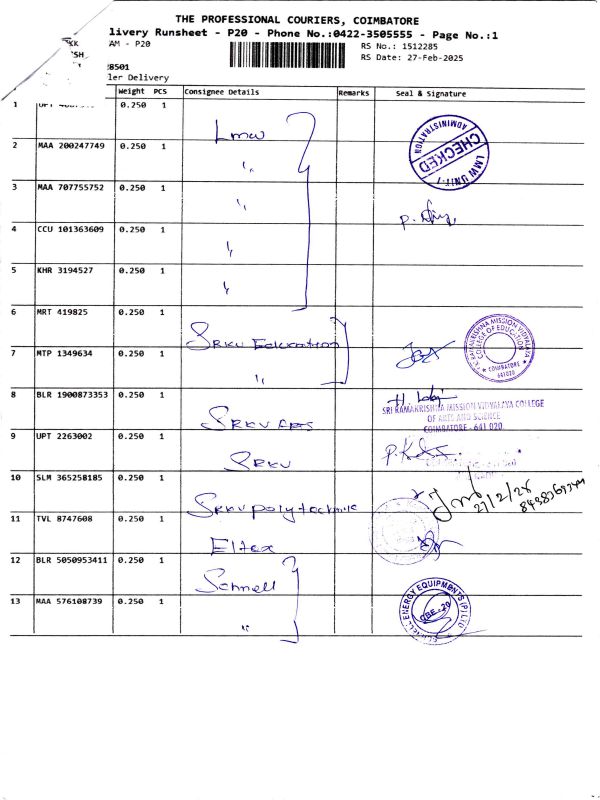 THE PROFESSIONAL COURIERS, COIMBATORE
livery Runsheet - P20 - Phone No.:0422-3505555 - Page No.:1
KK AM - P20 RS No.: 1512285
SH RS Date: 27-Feb-2025
8501
ler Delivery
Weight PCS Consignee Details Remarks Seal & Signature
1 0.250 1 Lmw
2 MAA 200247749 0.250 1 "
ADMINISTRATION CHECKED LMW UNIT-1
3 MAA 707755752 0.250 1 "
4 CCU 101363609 0.250 1 "
5 KHR 3194527 0.250 1 "
6 MRT 419825 0.250 1 SRKV Education
7 MTP 1349634 0.250 1 "
SRI RAMAKRISHNA MISSION VIDYALAYA COLLEGE OF EDUCATION COIMBATORE 641020
8 BLR 1900873353 0.250 1 SRKV Arts
SRI RAMAKRISHNA MISSION VIDYALAYA COLLEGE
OF ARTS AND SCIENCE
COIMBATORE - 641 020
9 UPT 2263002 0.250 1 SRKV
10 SLM 365258185 0.250 1 SRKV polytechnic
11 TVL 8747608 0.250 1 Eltex
12 BLR 5050953411 0.250 1 Schnell
13 MAA 576108739 0.250 1 "
SCHNELL ENERGY EQUIPMENTS (P) LTD